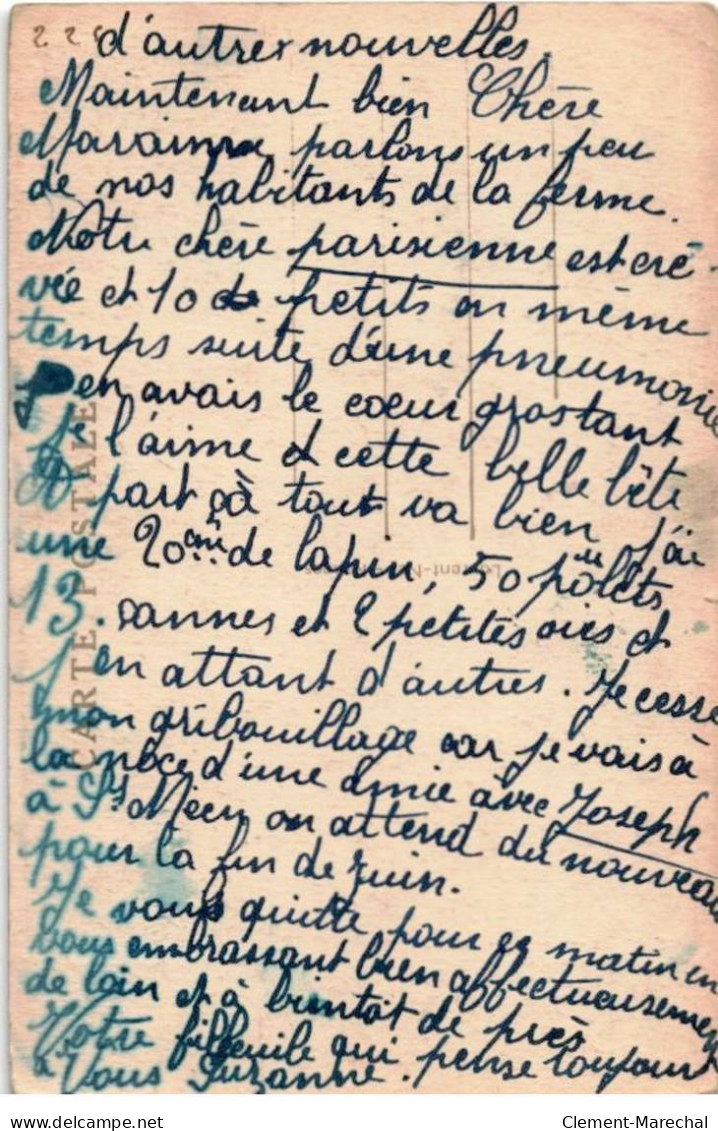 228
d'autres nouvelles.
Maintenant bien Chère
Marainne parlons un peu
de nos habitants de la ferme.
Notre chère parisienne est cre-
vée et 10 de petits en même
temps suite d'une pneumonie
j'en avais le coeur gros tant
je l'aime et cette belle bête
A part çà tout va bien j'ai
une 20aine de lapin, 50 pôlets
13. cannes et 2 petites oies et
j'en attant d'autres. Je cesse
mon gribouillage car je vais à
la noce d'une amie avec Joseph
à St Méen on attend du nouveau
pour la fin de Juin.
Je vous quitte pour ce matin en
vous embrassant bien affectueusement
de loin et à bientôt de près
Votre filleuile qui pense toujour
à Vous Suzanne.
CARTE POSTALE
Clement-Marechal